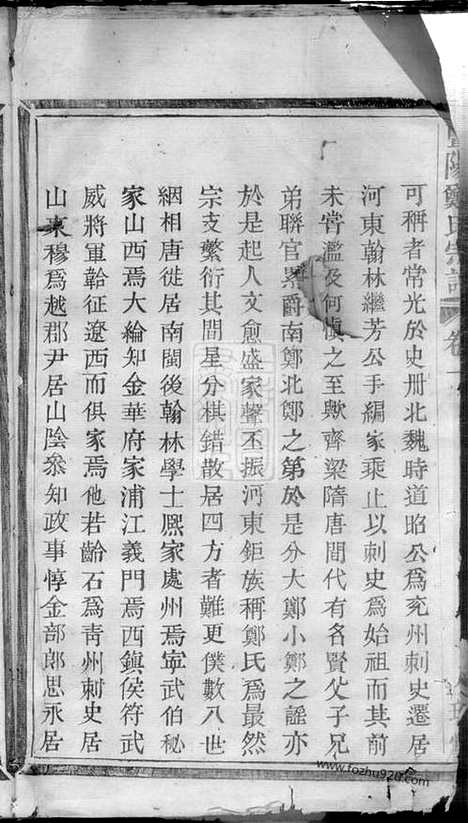 陽鄭氏宗譜 卷一
可稱者常光於史册北魏時道昭公爲兖州刺史遷居
河東翰林繼芳公手編家乘止以刺史爲始祖而其前
未嘗濫及何愼之至歟齊梁隋唐間代有名賢父子兄
弟聯官累爵南鄭北鄭之第於是分大鄭小鄭之謡亦
於是起人文愈盛家聲丕振河東鉅族稱鄭氏爲最然
宗支繁衍其間星分棋錯散居四方者難更僕數八世
絪相唐徙居南閩後翰林學士熈家處州焉寕武伯秘
家山西焉大綸知金華府家浦江義門焉西鎭侯符武
威將軍韐征遼西而俱家焉他若齡石爲靑州刺史居
山東穆爲越郡尹居山陰叅知政事惇金部郎思永居
www.fozhu920.com